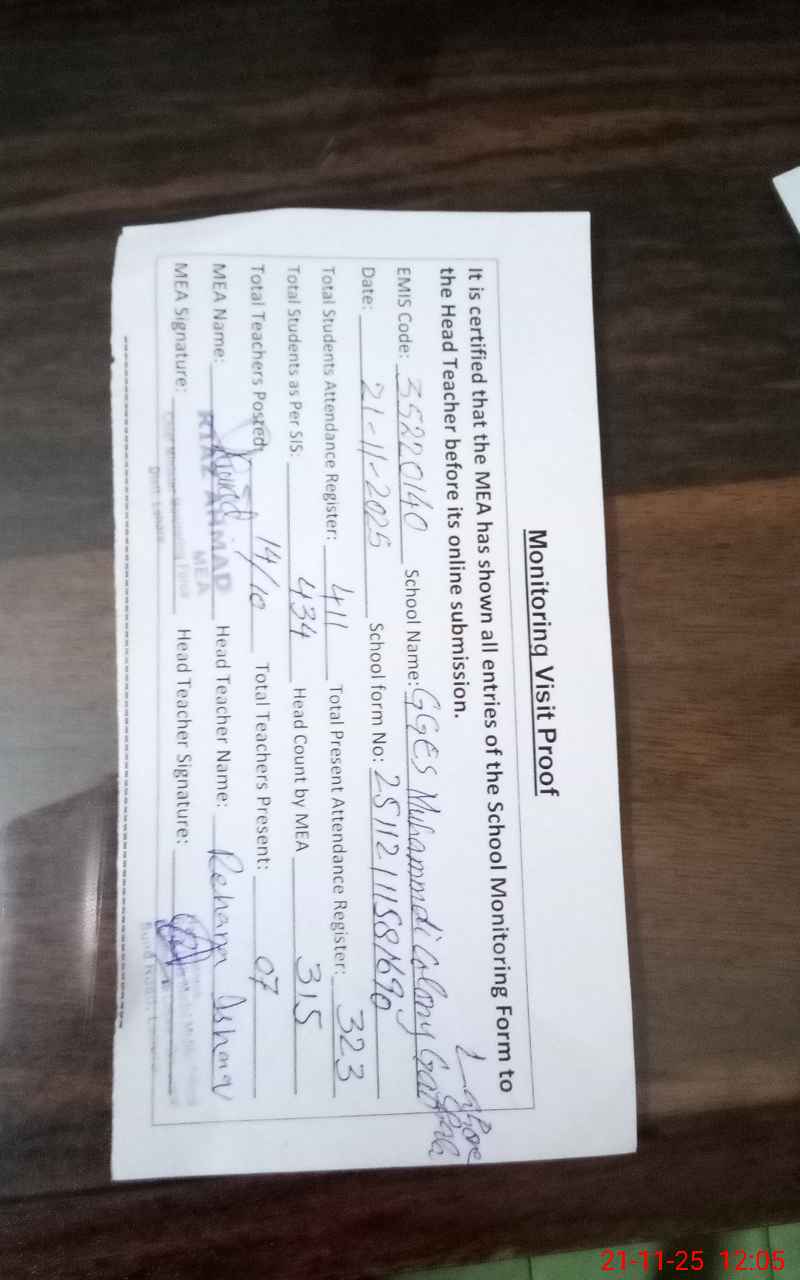 Monitoring Visit Proof
It is certified that the MEA has shown all entries of the School Monitoring Form to
the Head Teacher before its online submission.
EMIS Code: 35220140 School Name: GGES Muhammdi colony Lahore
Date: 21-11-2025 School form No:
Total Students Attendance Register: 411 Total Present Attendance Register: 323
Total Students as Per SIS: 434 Head Count by MEA 315
Total Teachers Posted: 14/10 Total Teachers Present: 07
MEA Name: Head Teacher Name: Rehana
MEA Signature: Head Teacher Signature:
RIAZ AHMAD
MEA
21-11-25 12:05